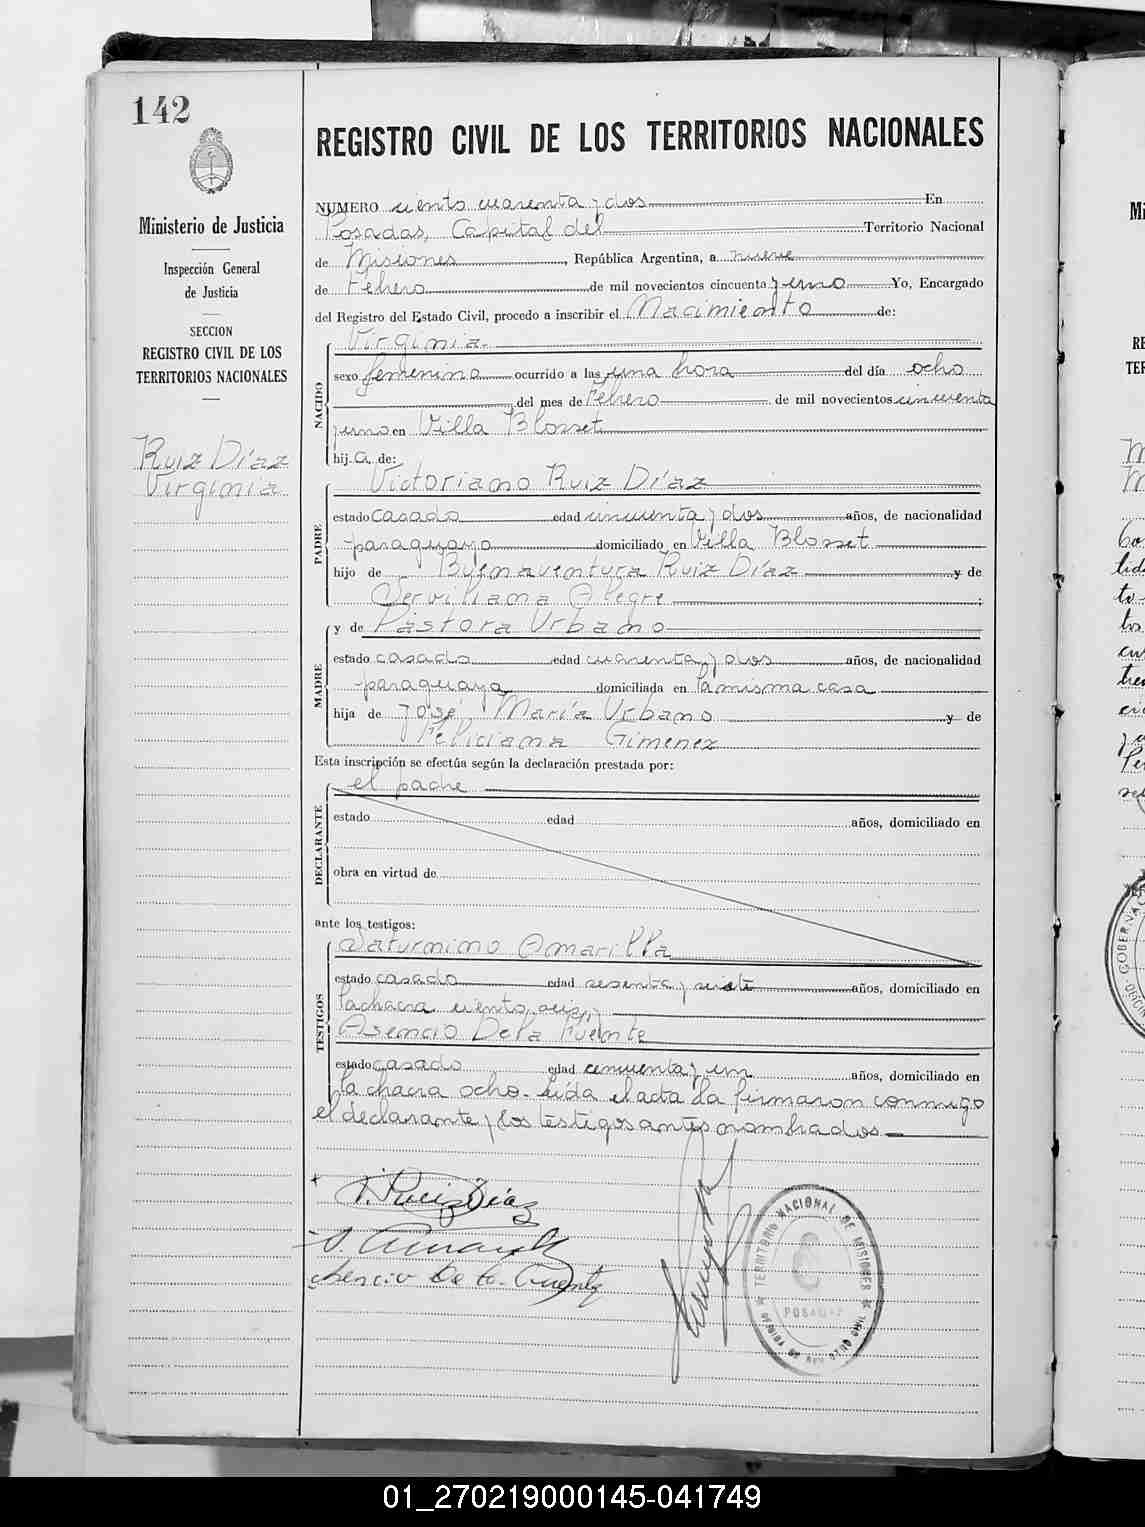 142
REGISTRO CIVIL DE LOS TERRITORIOS NACIONALES
Ministerio de Justicia
Inspección General
de Justicia
SECCION
REGISTRO CIVIL DE LOS
TERRITORIOS NACIONALES
Ruiz Díaz
Virginia
NUMERO ciento cuarenta y dos En
Posadas, Capital del Territorio Nacional
de Misiones, República Argentina, a nueve
de Febrero de mil novecientos cincuenta y uno Yo, Encargado
del Registro del Estado Civil, procedo a inscribir el Nacimiento de:
NACIDO
Virginia
sexo femenino ocurrido a las una hora del día ocho
del mes de Febrero de mil novecientos cincuenta
y uno en Villa Blosset
hij a de:
PADRE
Victoriano Ruiz Díaz
estado casado edad cincuenta y dos años, de nacionalidad
paraguayo domiciliado en Villa Blosset
hijo de Buenaventura Ruiz Díaz y de
Serviliana Alegre ;
MADRE
y de Pastora Urbano
estado casada edad cuarenta y dos años, de nacionalidad
paraguaya domiciliada en la misma casa
hija de José María Urbano y de
Feliciana Gimenez
Esta inscripción se efectúa según la declaración prestada por:
DECLARANTE
el padre
estado edad años, domiciliado en
obra en virtud de
ante los testigos:
TESTIGOS
Saturnino Amarilla
estado casado edad sesenta y siete años, domiciliado en
la chacra ciento
Asencio De la Fuente
estado casado edad cincuenta y un años, domiciliado en
la chacra ocho. Leída el acta la firmaron conmigo
el declarante y los testigos antes nombrados
V. Ruiz Díaz
S. Amarilla
Asencio De la Fuente
TERRITORIO NACIONAL DE MISIONES
POSADAS
GOBERNAC
01_270219000145-041749